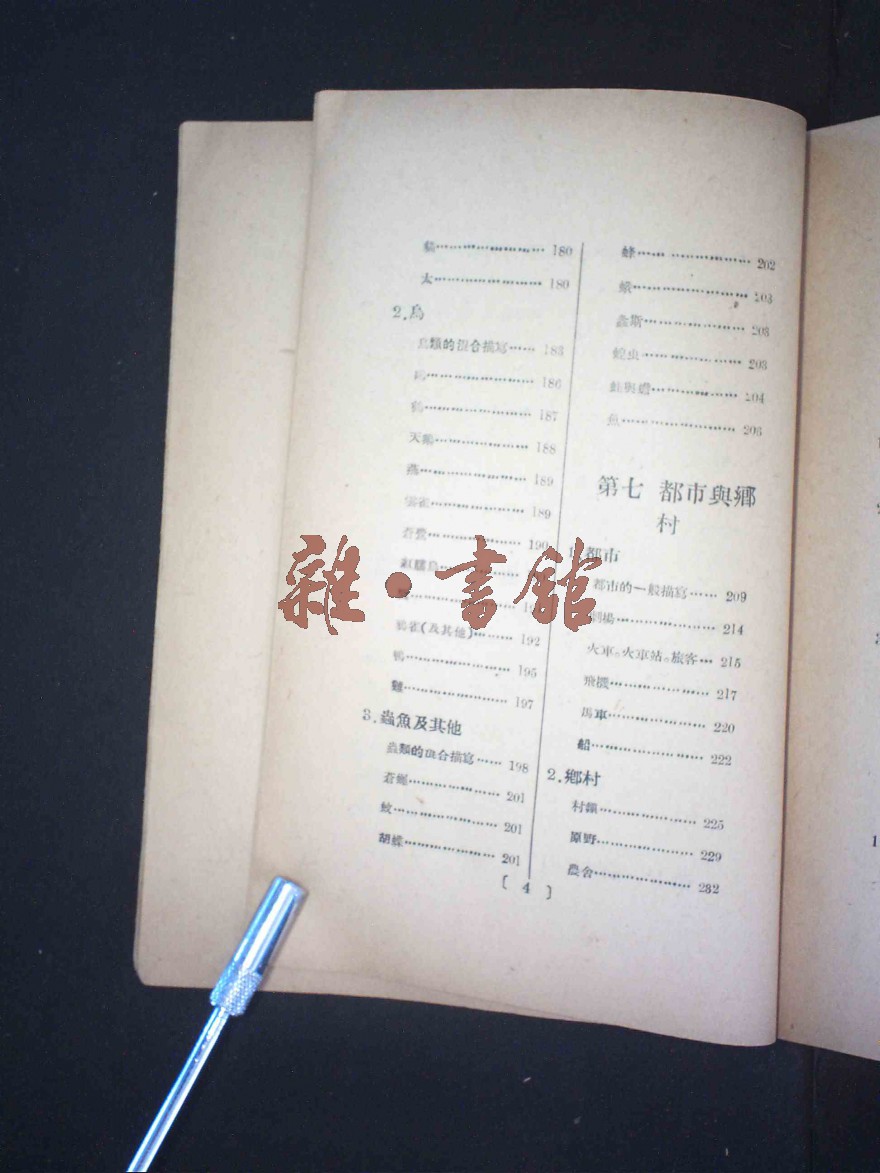 貓…………………… 180
犬…………………… 180
2.鳥
鳥類的混合描寫…… 183
…………………… 186
…………………… 187
天鵝…………………… 188
燕…………………… 189
雲雀…………………… 189
蒼鷺…………………… 190
紅膆鳥……………………
鴉雀(及其他)……… 192
鴨…………………… 195
雞…………………… 197
3.蟲魚及其他
蟲類的混合描寫…… 198
蒼蠅…………………… 201
蚊…………………… 201
胡蝶…………………… 201
蜂…………………… 202
蛾…………………… 203
螽斯…………………… 203
蝗虫…………………… 203
蛙與蟾…………………… 204
魚…………………… 206
第七 都市與鄉
村
1.都市
都市的一般描寫…… 209
劇場…………………… 214
火車。火車站。旅客… 215
飛機…………………… 217
馬車…………………… 220
船…………………… 222
2.鄉村
村鎮…………………… 225
原野…………………… 229
農舍…………………… 232
〔 4 〕
雜·書館